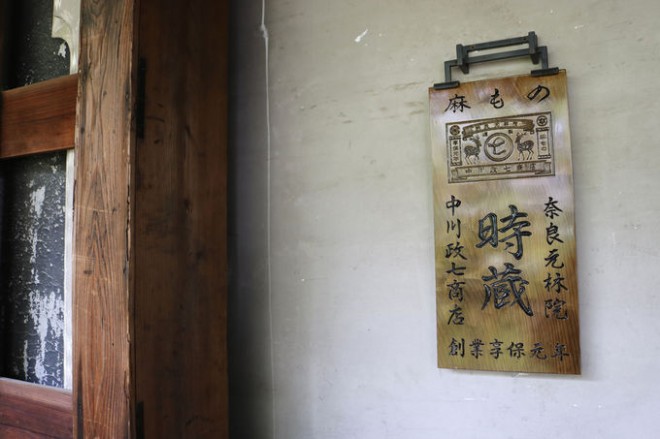 麻もの
七
奈良元林院
時蔵
中川政七商店
創業享保元年